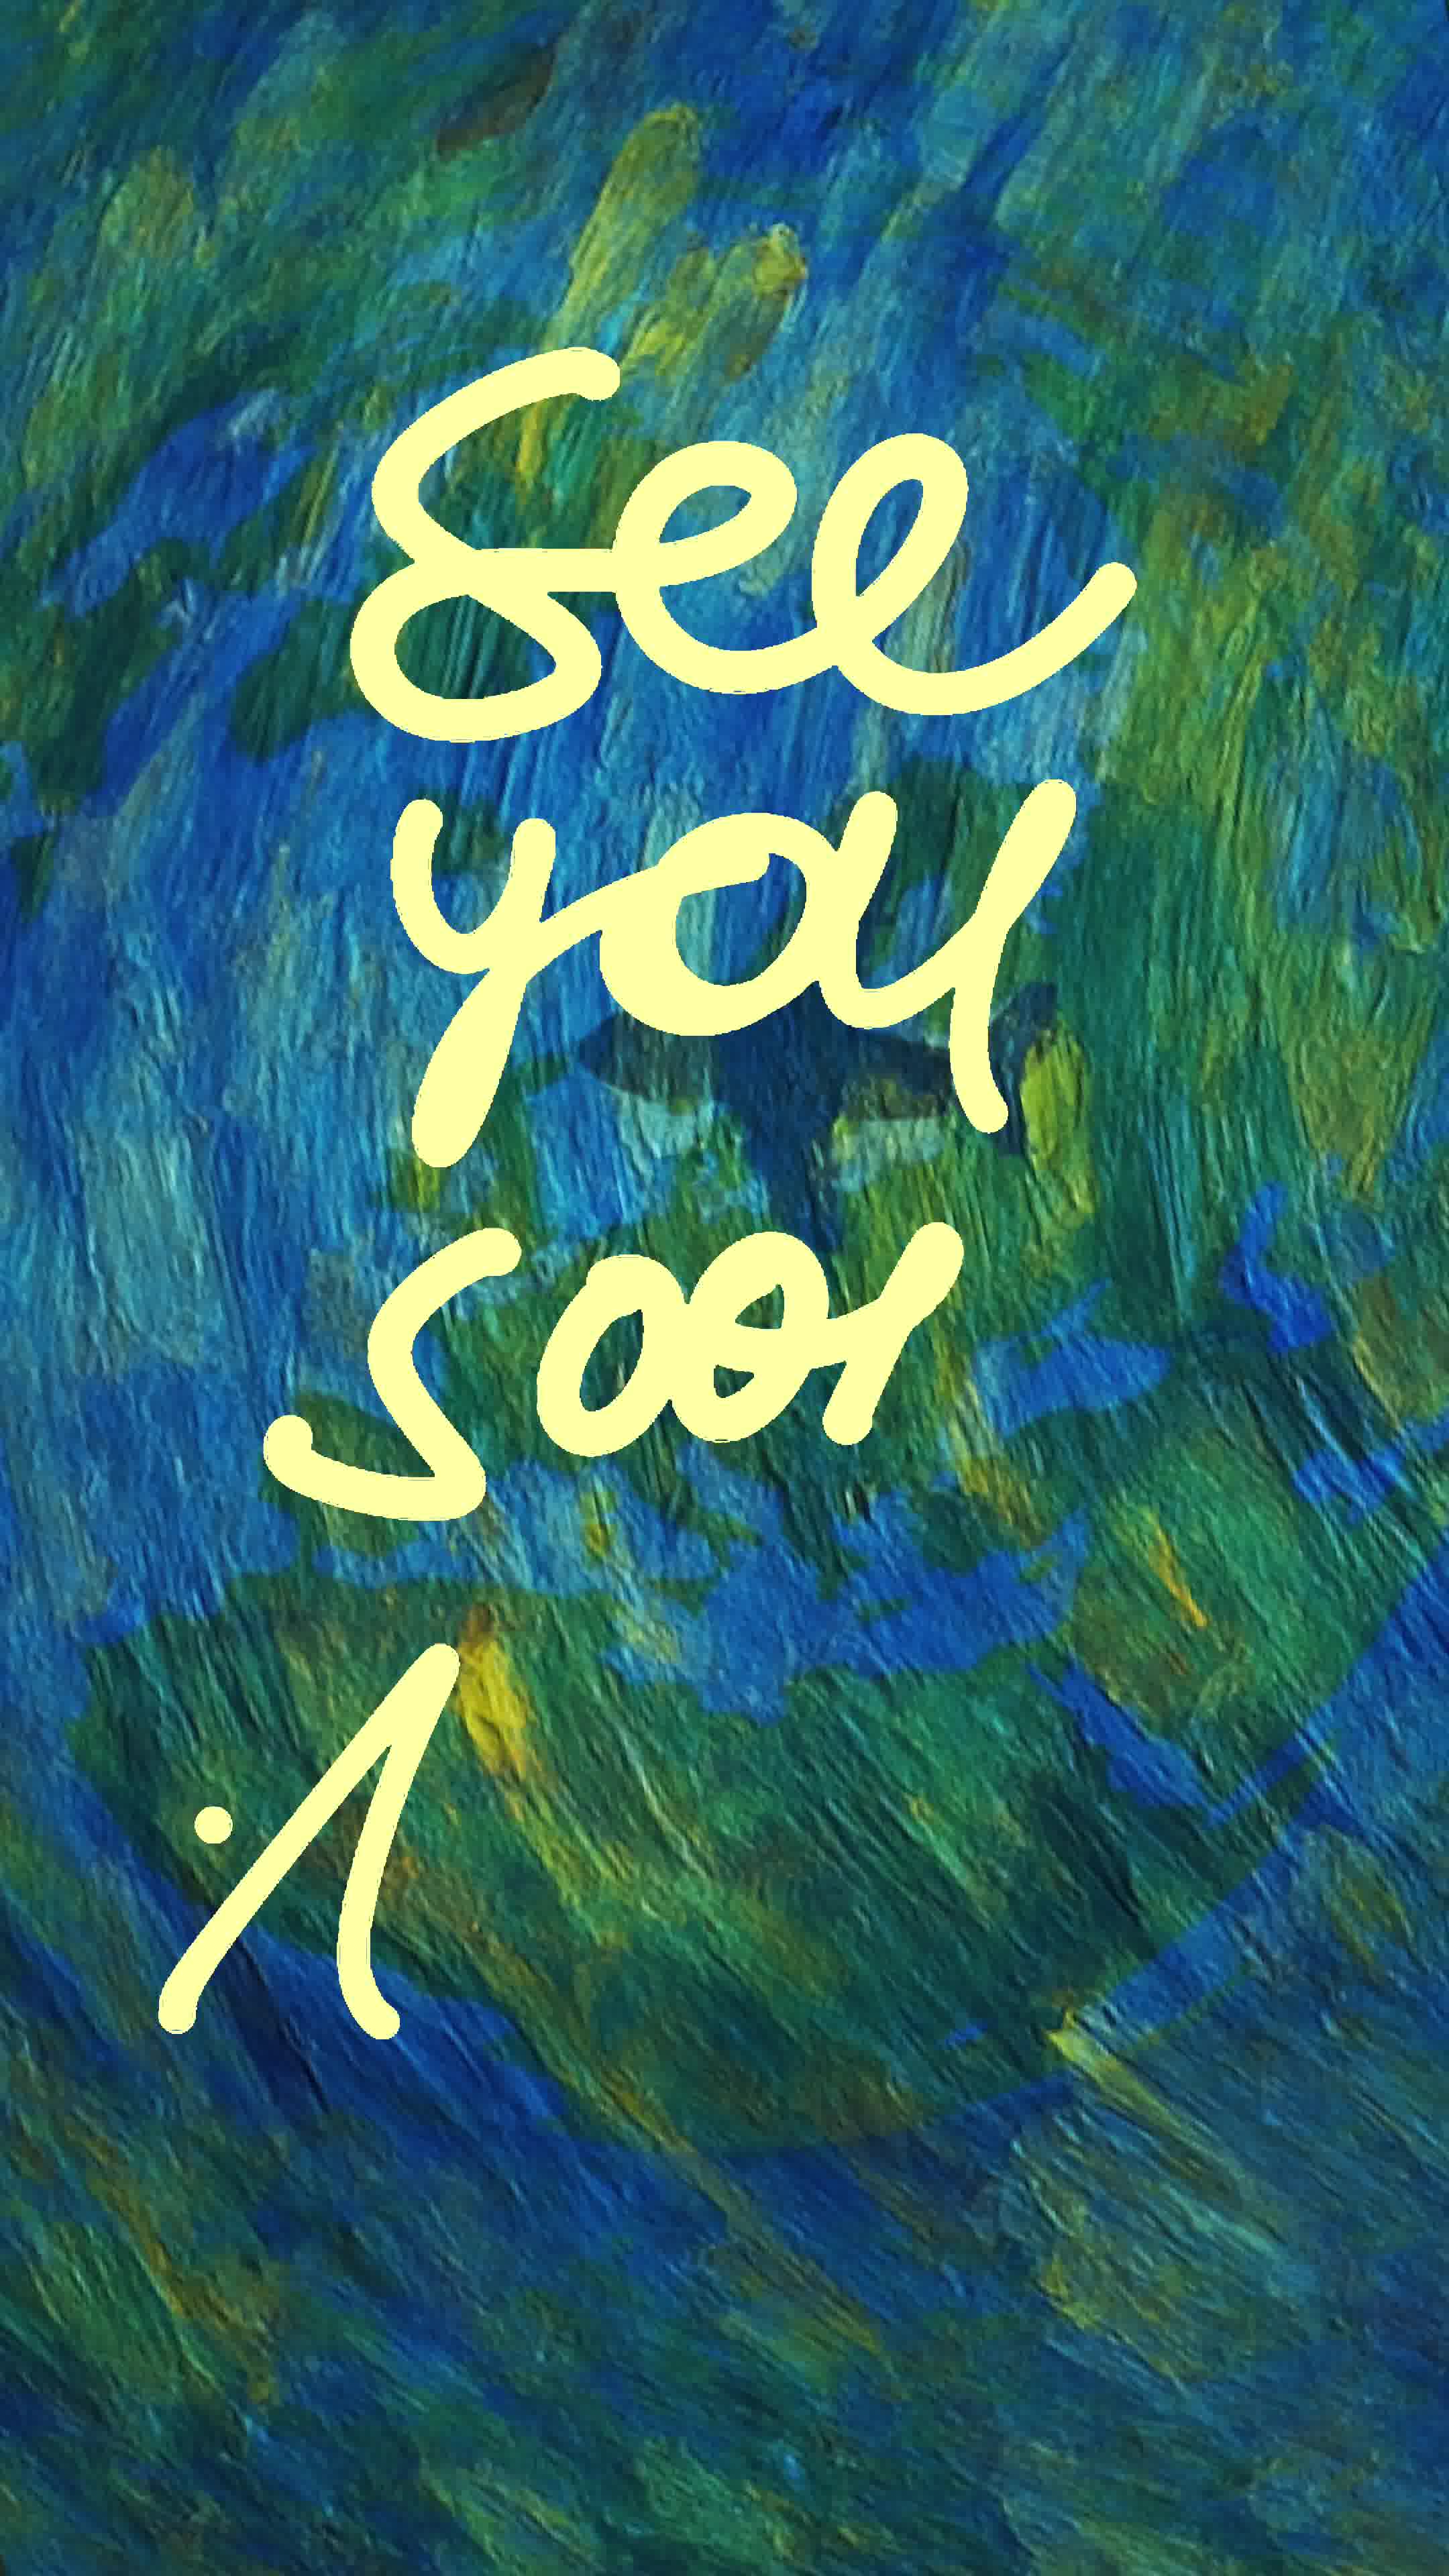 see
you
soon